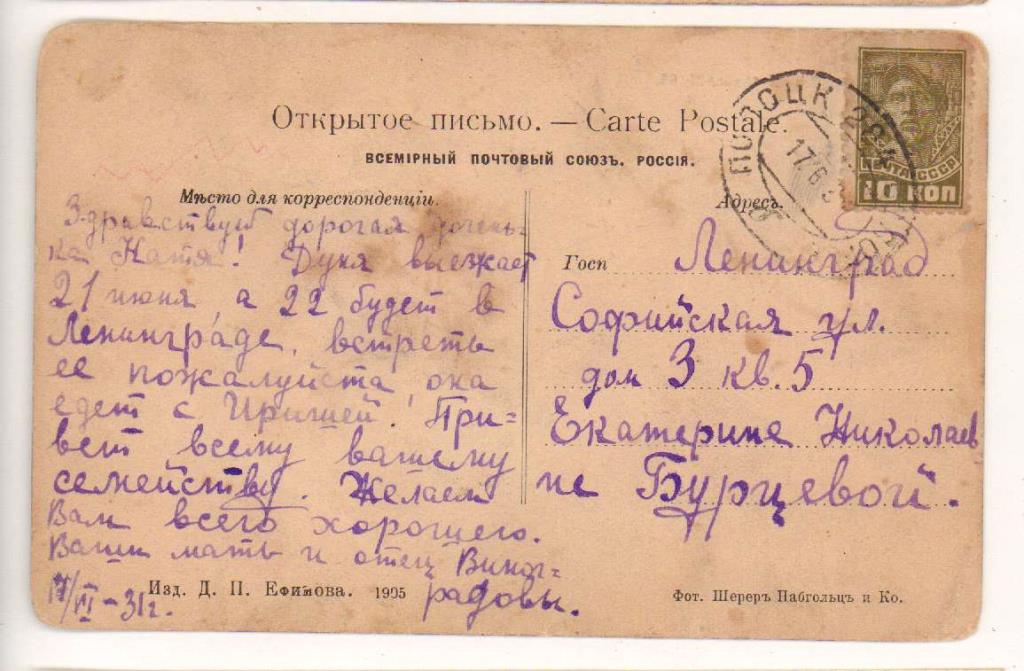 Открытое письмо. — Carte Postale.
ВСЕМІРНЫЙ ПОЧТОВЫЙ СОЮЗЪ. РОССІЯ.
Мѣсто для корреспонденціи.
Адресъ.
ПОЛОЦК
17.6.3
ПОЧТА СССР
10 КОП
Здравствуй дорогая дочень-
ка Катя! Дуня выезжает
21 июня а 22 будет в
Ленинграде, встреть
ее пожалуйста, она
едет с Иришей! При-
вет всему вашему
семейству. Желаем
Вам всего хорошего.
Ваши мать и отец Виног-
радовы.
17/VI-31г.
Госп
Ленинград
Софийская ул.
дом 3 кв. 5
Екатерине Николаев
не Бурцевой.
Изд. Д. П. Ефимова. 1905
Фот. Шереръ Набгольцъ и Ко.